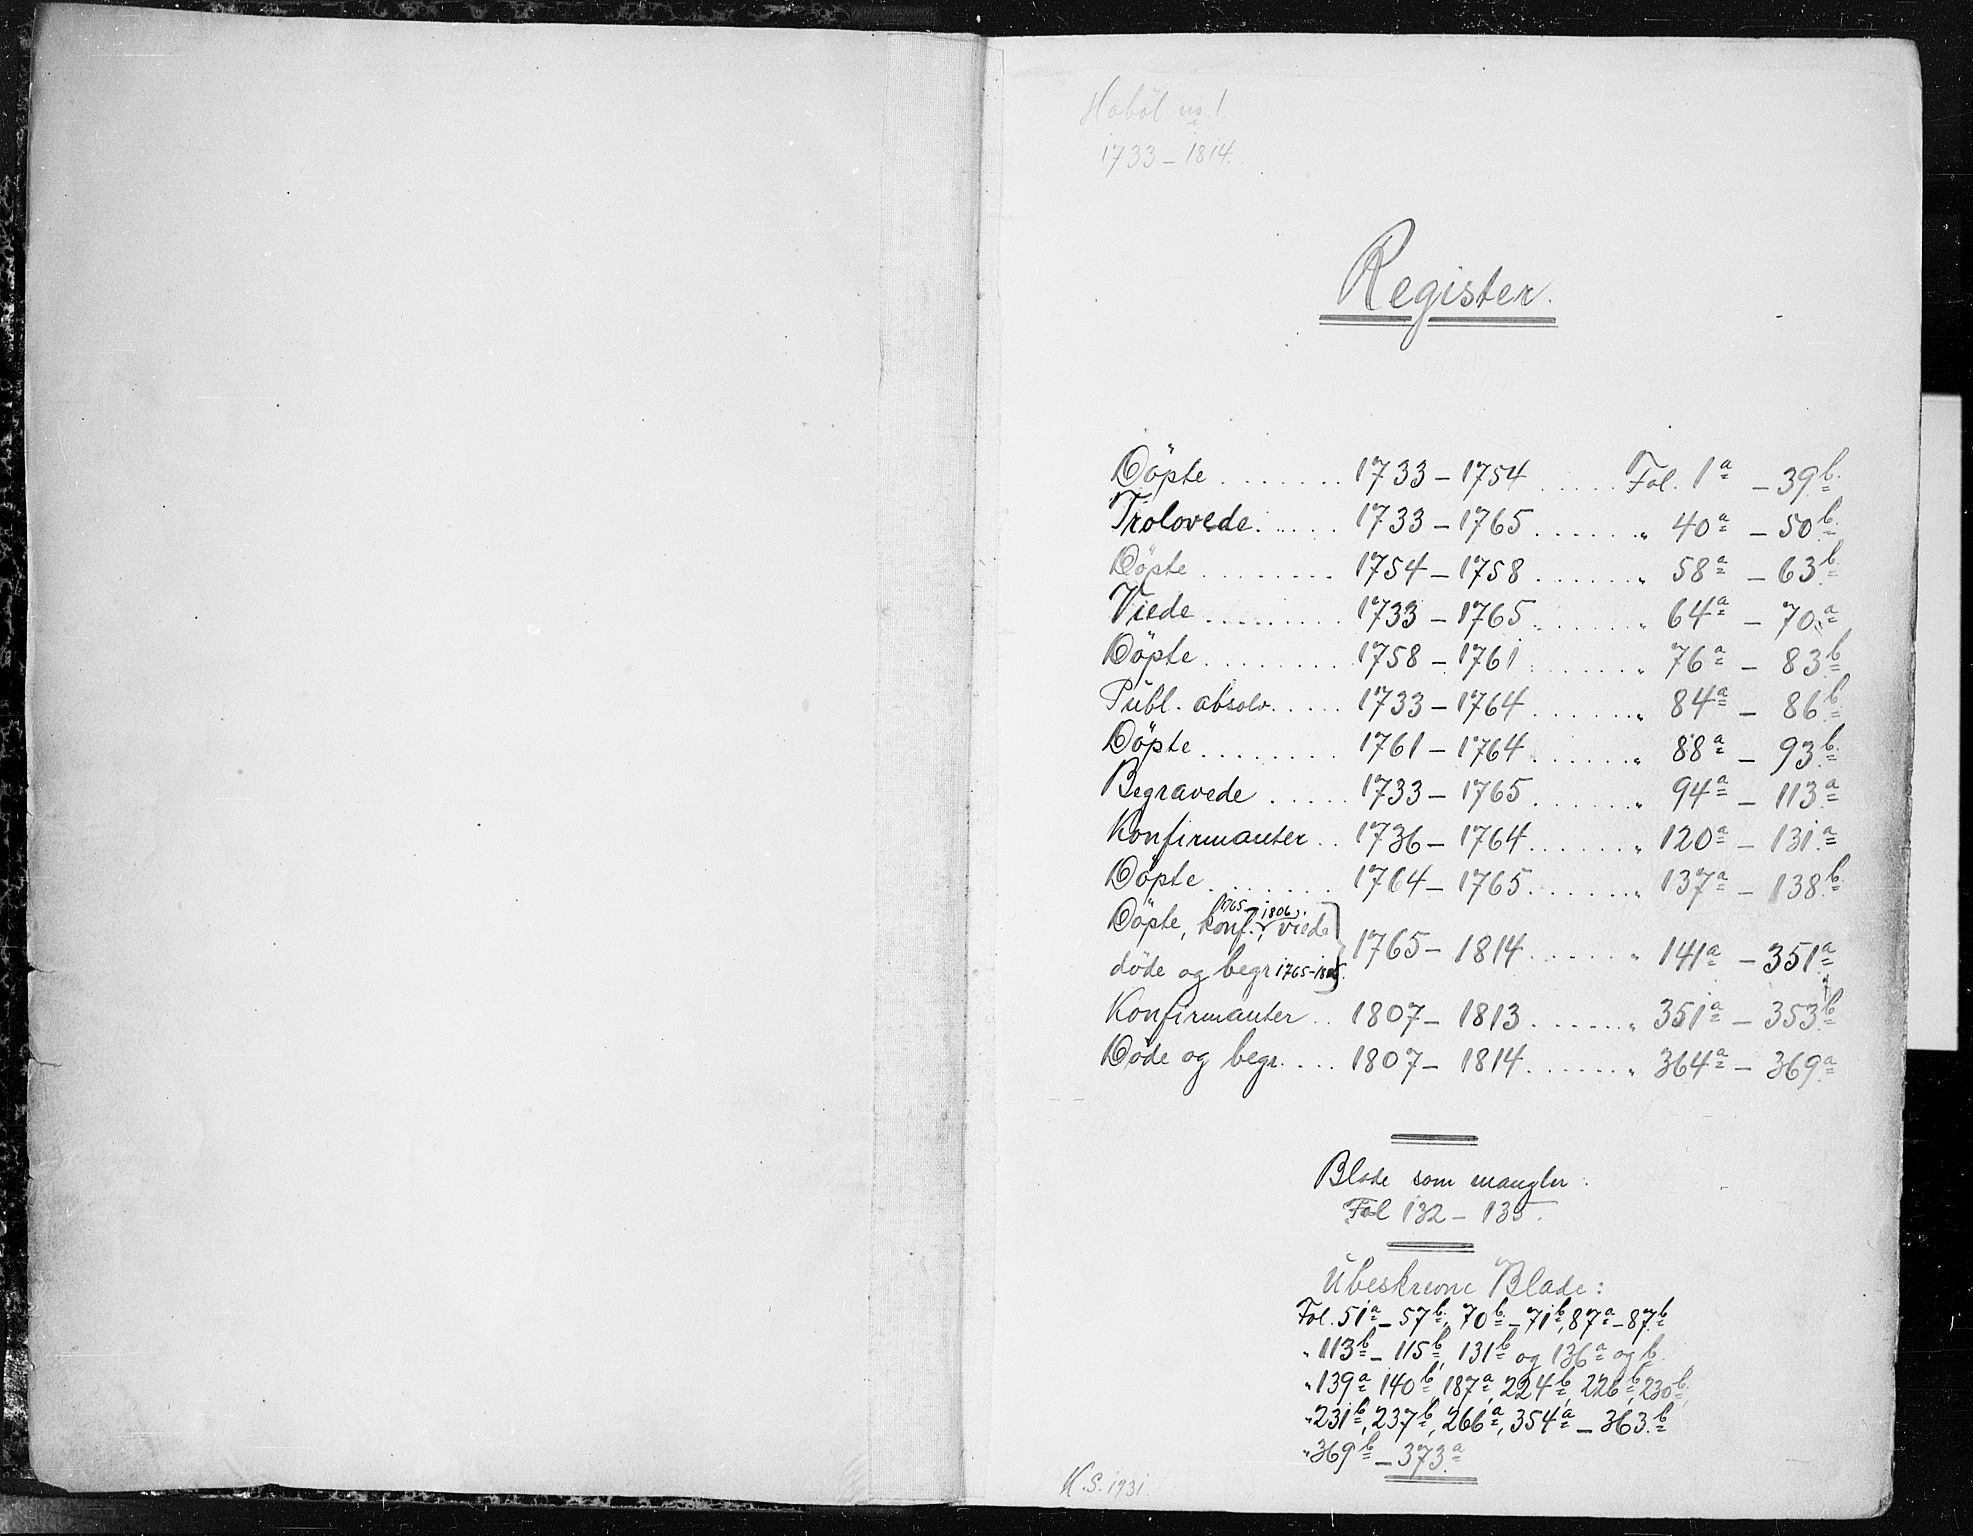 Hoböl no. 1.
1733 – 1814.
Register.
Döpte ........ 1733 – 1754 ..... Fol. 1a – 39b.
Trolovede ..... 1733 – 1765 ...... „ 40a – 50b.
Döpte ........ 1754 – 1758 ...... „ 58a – 63b.
Viede ........ 1733 – 1765 ...... „ 64a – 70a
Döpte ........ 1758 – 1761 ...... „ 76a – 83b
Publ. absolv. .... 1733 – 1764 ...... „ 84a – 86b
Döpte ........ 1761 – 1764 ...... „ 88a – 93b.
Begravede ..... 1733 – 1765 ...... „ 94a – 113a
Konfirmanter .. 1736 – 1764 ...... „ 120a – 131a
Döpte ........ 1764 – 1765 ...... „ 137a – 138b.
1765 – 1806.
Döpte, konf., viede
döde og begr 1765-
} 1765 – 1814 ...... „ 141a – 351a
Konfirmanter .. 1807 – 1813 ...... „ 351a – 353b
Döde og begr. ... 1807 – 1814 ...... „ 364a – 369a
Blade som mangler:
Fol 132 – 135.
Ubeskrevne Blade:
Fol. 51a – 57b, 70b – 71b, 87a – 87b
„ 113b – 115b, 131b og 136a og b.
„ 139a, 140b, 187a, 224b, 226b, 230b,
„ 231b, 237b, 266a, 354a – 363b
„ 369b – 373a
K.S. 1931.